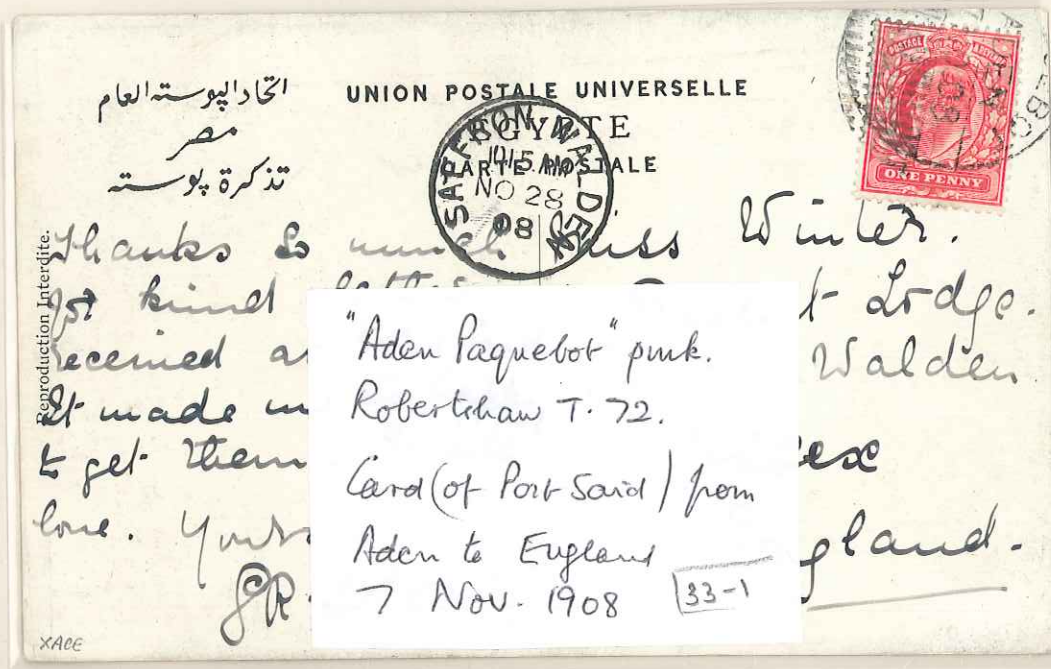 اتحاد البوسته العام
مصر
تذكرة بوسته
UNION POSTALE UNIVERSELLE
EGYPTE
CARTE POSTALE
SAFFRON WALDEN
1015 AM
NO 28
08
POSTAGE
ONE PENNY
Reproduction Interdite.
Thanks so much
for kind
received
It made
to get them
love. Yours
Miss Winter.
Lodge.
Walden
England.
"Aden Paquebot" pmk.
Robertshaw T.72.
Card (of Port Said) from
Aden to England
7 Nov. 1908
33-1
XACE